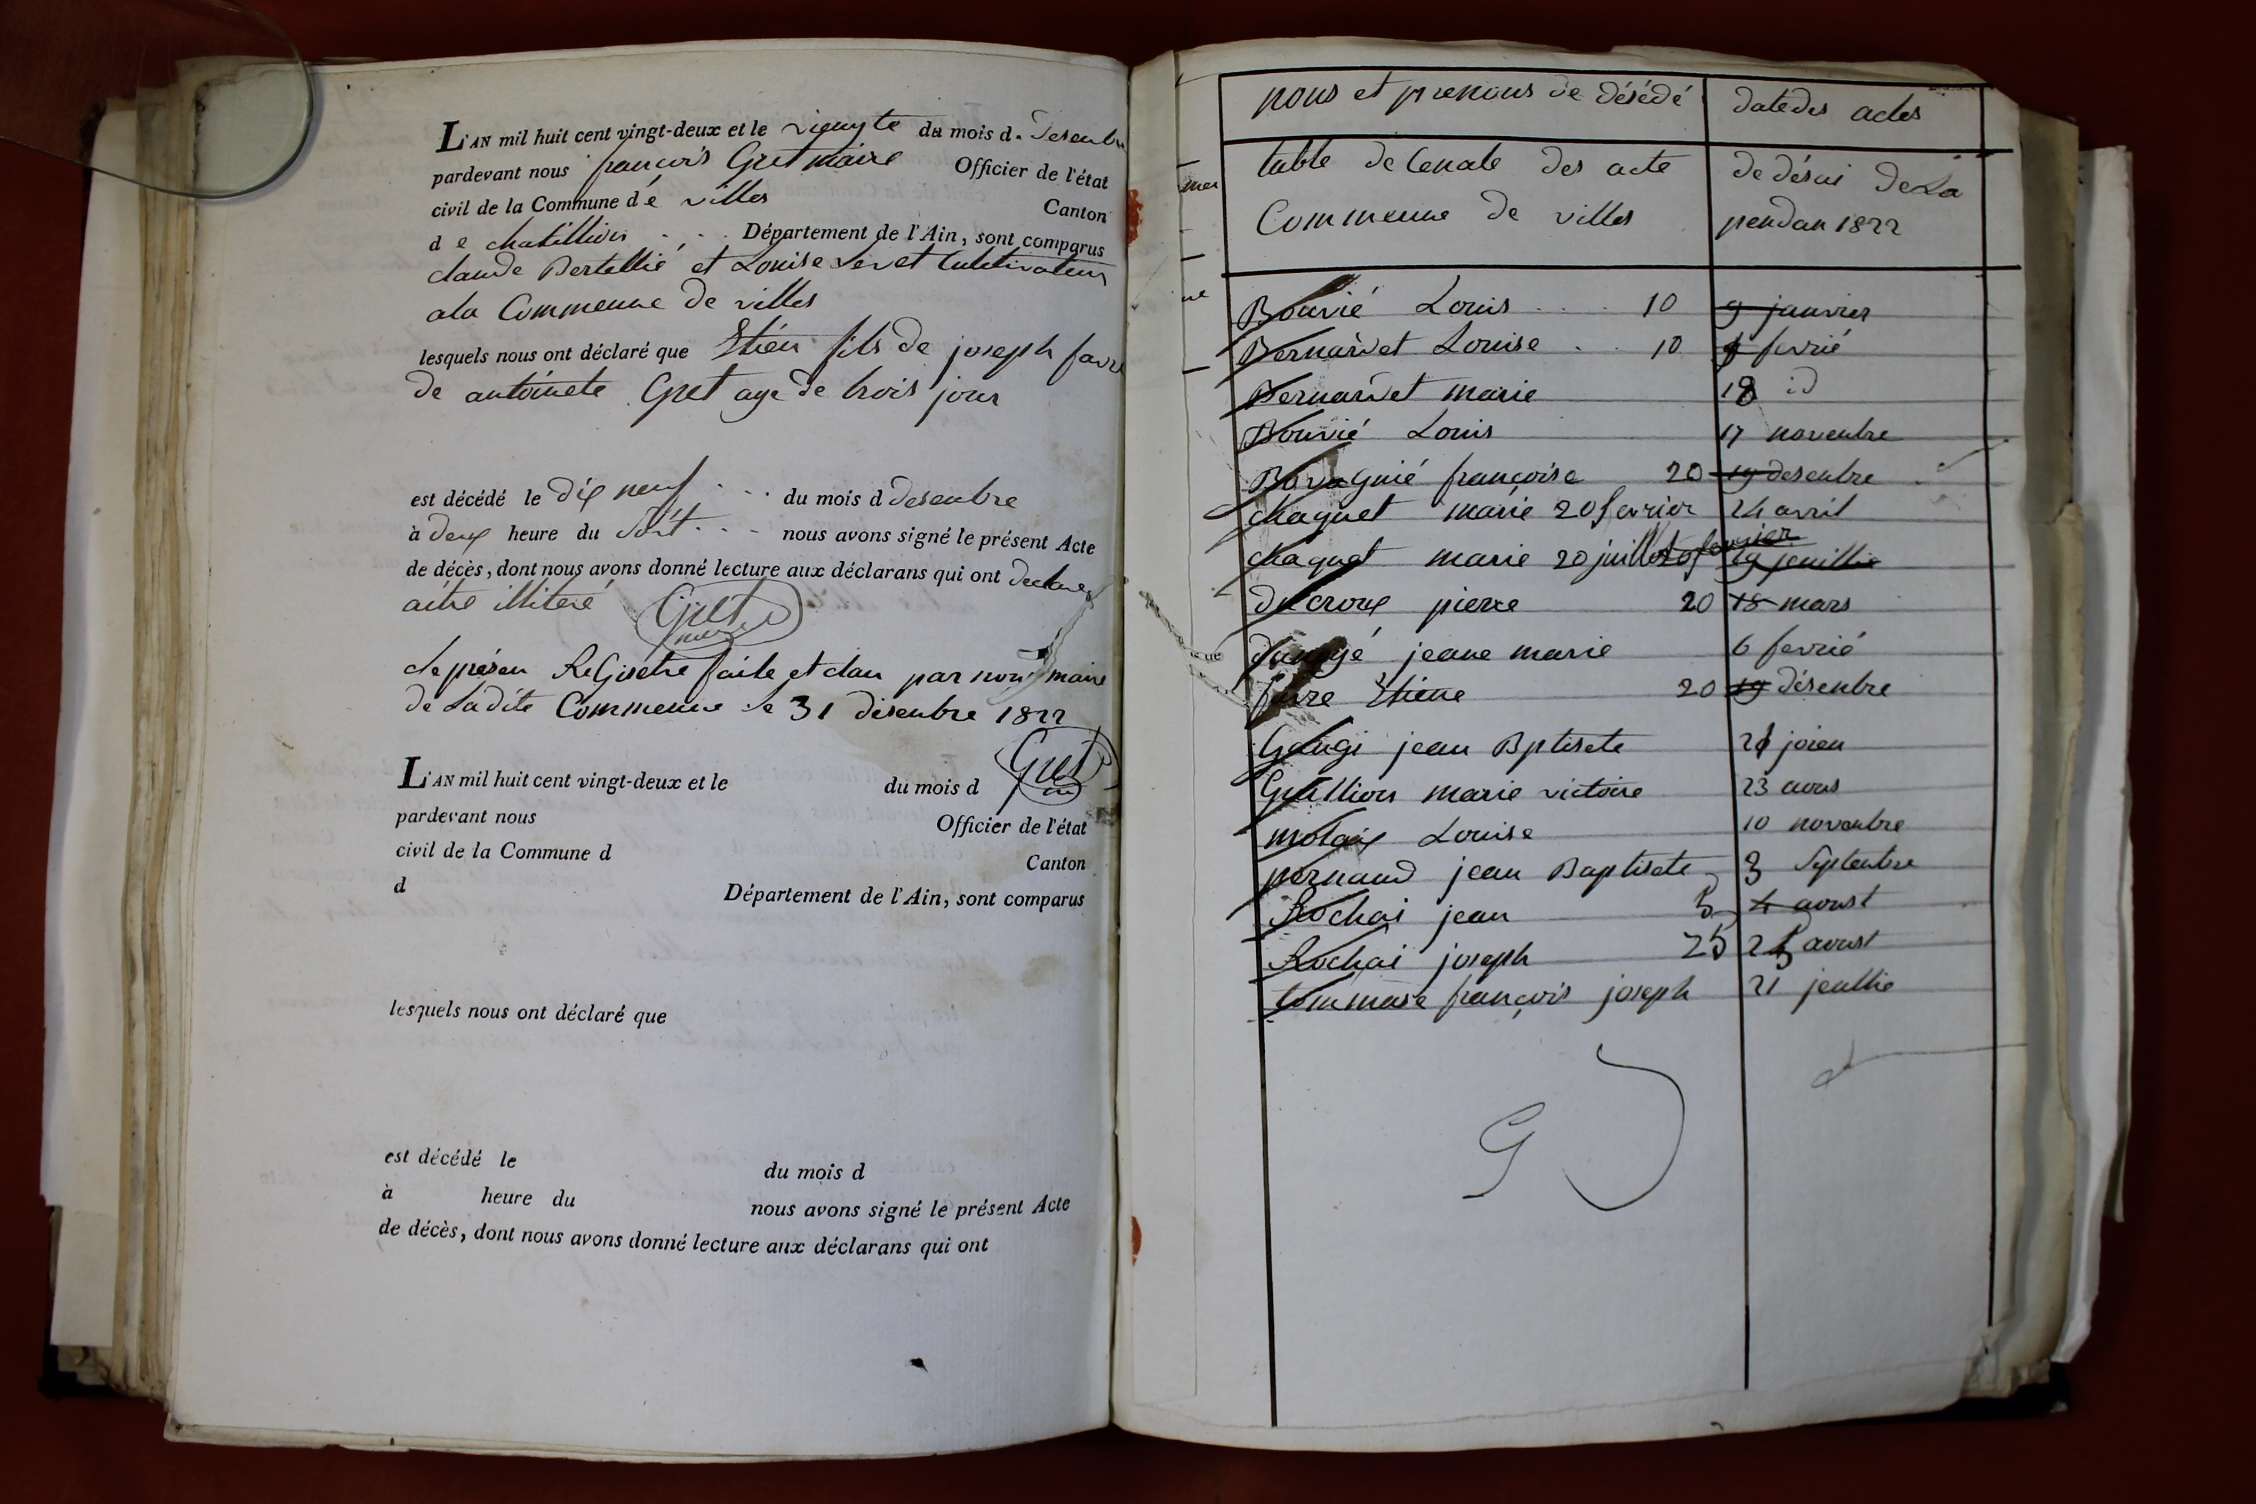 L'AN mil huit cent vingt-deux et le vienyte du mois d. desenbre
pardevant nous françois Gret maire Officier de l'état
civil de la Commune d é villes Canton
d e chatillion Département de l'Ain, sont comparus
claude Bertellié et Louise Levet Cultivateur
ala Commeune de villes
lesquels nous ont déclaré que Etién fils de joseph favre
de antoinete Gret age de trois jour
est décédé le dix neuf du mois d desenbre
à deux heure du nous avons signé le présent Acte
de décès, dont nous avons donné lecture aux déclarans qui ont declare
aitre illiteré Gret
maire
le présen ReGisetre faite et clau par nous maire
de Ladite Commeune le 31 désenbre 1822
Gret
L'AN mil huit cent vingt-deux et le du mois d
pardevant nous Officier de l'état
civil de la Commune d Canton
d Département de l'Ain, sont comparus
lesquels nous ont déclaré que
est décédé le du mois d
à heure du nous avons signé le présent Acte
de décès, dont nous avons donné lecture aux déclarans qui ont
nons et prenons de désédé date des actes
table de Cenale des acte de désai de La
Commeune de villes pendan 1822
Bouvié Louis 10 9 janvier
Bernardet Louise 10 fevrié
Bernardet marie 18 id
Bouvié Louis 17 novenbre
BovaGnié françoise 20 19 desenbre
chaquet marie 20 fevrier 24 avril
chaquet marie 20 juillet 20 fevrier 19 jeuillie
ducroux pierre 20 18 mars
jeane marie 6 fevrié
favre Etiene 20 19 désenbre
Gougi jean Bptisete 21 joien
Guillion marie victoire 23 aous
molaix Louise 10 novenbre
pernaud jean Baptisete 3 Septenbre
Rochai jean 5 4 aoust
Rochai joseph 25 25 aoust
tommase françois joseph 21 jeullie
G